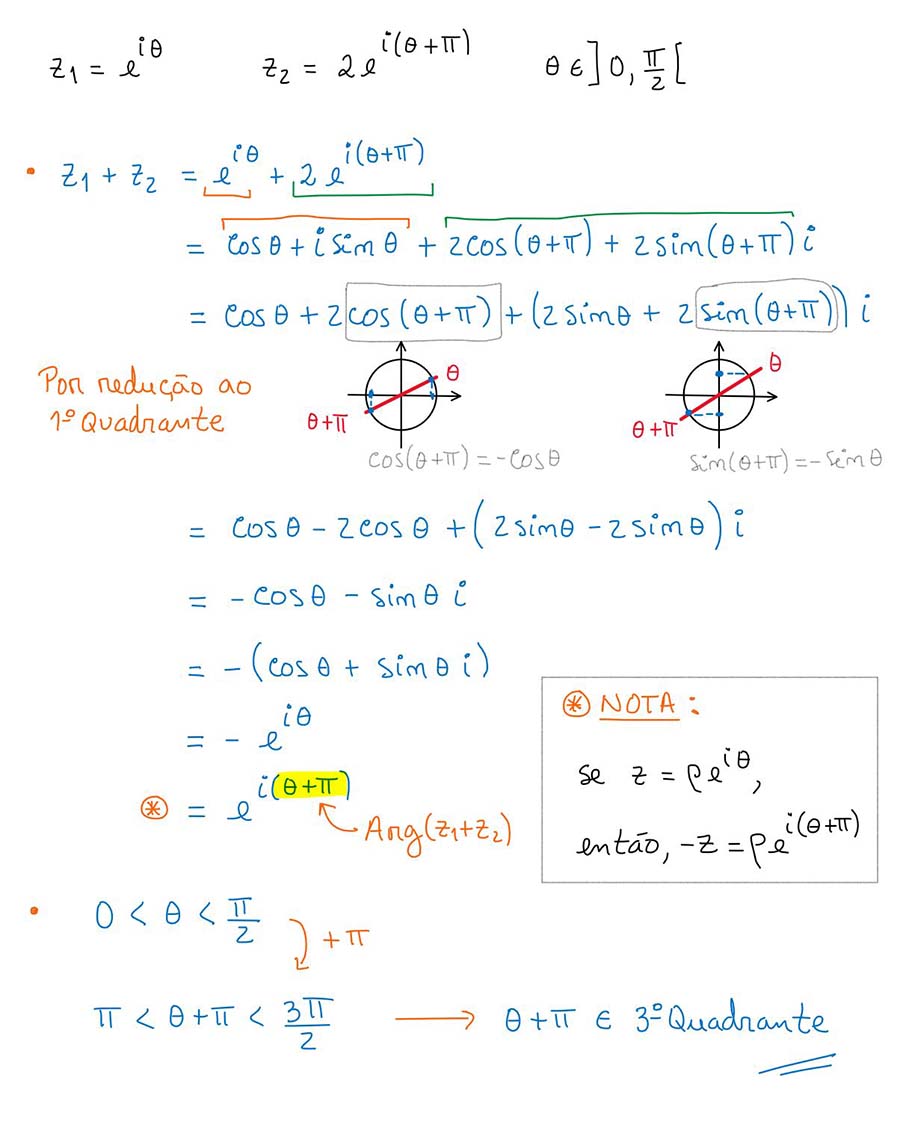 z₁ = e^{iθ} z₂ = 2e^{i(θ+π)} θ ∈ ]0, π/2[
• z₁ + z₂ = e^{iθ} + 2e^{i(θ+π)}
= cosθ + i sinθ + 2cos(θ+π) + 2sin(θ+π)i
= cosθ + 2cos(θ+π) + (2sinθ + 2sin(θ+π))i
Por redução ao
1º Quadrante
θ
θ+π
cos(θ+π) = -cosθ
θ
θ+π
sin(θ+π) = -senθ
= cosθ - 2cosθ + (2sinθ - 2sinθ)i
= -cosθ - sinθ i
= -(cosθ + sinθ i)
= - e^{iθ}
⊛ = e^{i(θ+π)}
Arg(z₁+z₂)
⊛ NOTA:
se z = ρe^{iθ},
então, -z = ρe^{i(θ+π)}
• 0 < θ < π/2
+π
π < θ+π < 3π/2 → θ+π ∈ 3º Quadrante